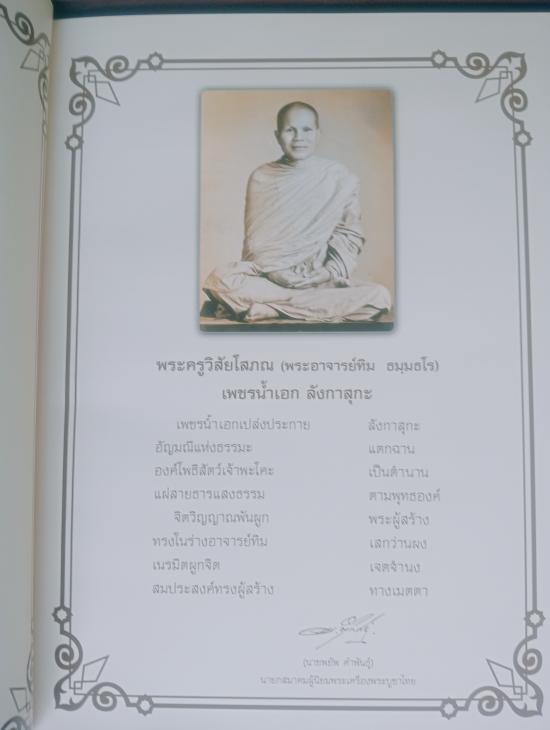 พระครูวิสัยโสภณ (พระอาจารย์ทิม ธมฺมธโร)
เพชรน้ำเอก ลังกาสุกะ
เพชรน้ำเอกเปล่งประกาย ลังกาสุกะ
อัญมณีแห่งธรรมะ แตกฉาน
องค์โพธิสัตว์เจ้าพะโคะ เป็นตำนาน
แผ่สายธารแสงธรรม ตามพุทธองค์
จิตวิญญาณพันผูก พระผู้สร้าง
ทรงในร่างอาจารย์ทิม เสกว่านผง
เนรมิตผูกจิต เจตจำนง
สมประสงค์ทรงผู้สร้าง ทางเมตตา
(นายพยัพ คำพันธุ์)
นายกสมาคมผู้นิยมพระเครื่องพระบูชาไทย